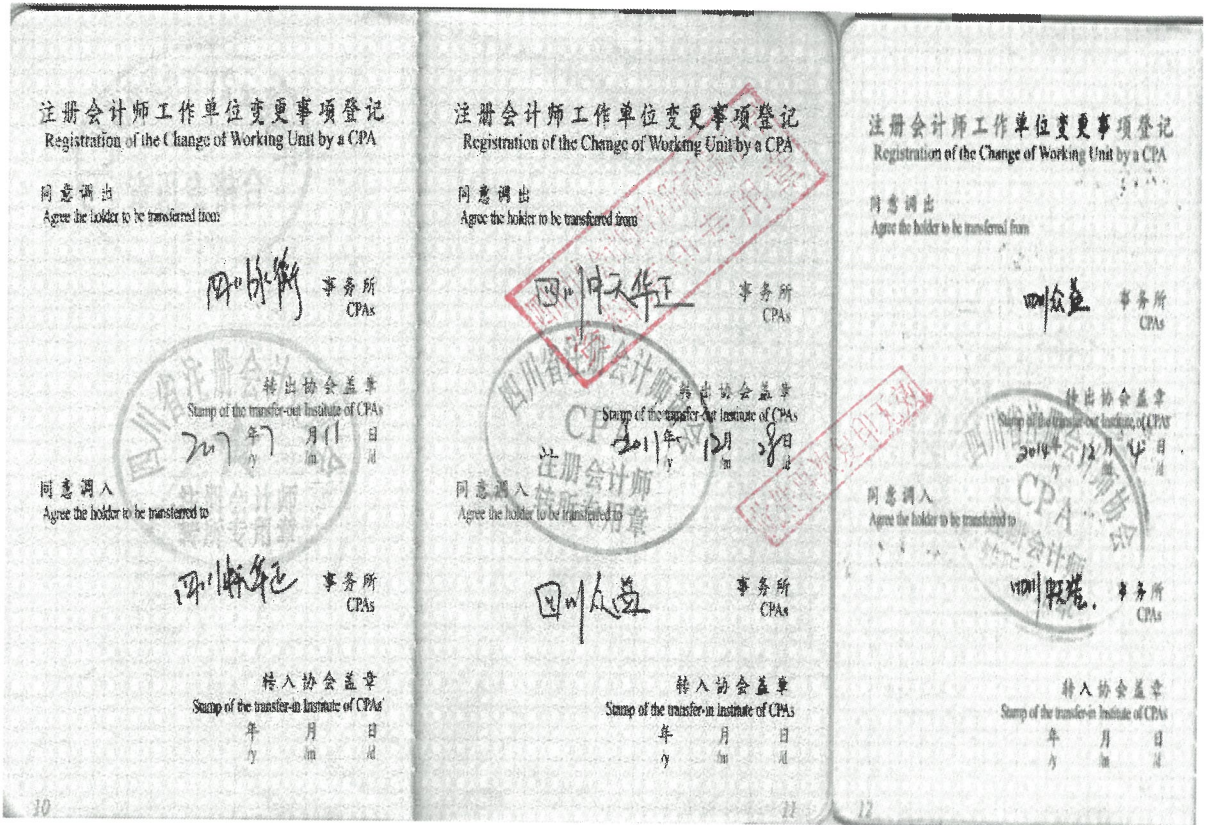 注册会计师工作单位变更事项登记
Registration of the Change of Working Unit by a CPA
同意调出
Agree the holder to be transferred from
四川永衡 事务所
CPAs
四川省注册会计师协会
转出协会盖章
Stamp of the transfer-out Institute of CPAs
2007年7月11日
/y /m /d
注册会计师
转所专用章
同意调入
Agree the holder to be transferred to
四川中天华正 事务所
CPAs
转入协会盖章
Stamp of the transfer-in Institute of CPAs
年 月 日
/y /m /d
10
注册会计师工作单位变更事项登记
Registration of the Change of Working Unit by a CPA
同意调出
Agree the holder to be transferred from
四川中天华正 事务所
CPAs
四川省注册会计师协会
CPA
转出协会盖章
Stamp of the transfer-out Institute of CPAs
2011年12月28日
/y /m /d
注册会计师
转所专用章
同意调入
Agree the holder to be transferred to
四川众益 事务所
CPAs
转入协会盖章
Stamp of the transfer-in Institute of CPAs
年 月 日
/y /m /d
11
再次复印无效
注册会计师工作单位变更事项登记
Registration of the Change of Working Unit by a CPA
同意调出
Agree the holder to be transferred from
四川众益 事务所
CPAs
转出协会盖章
Stamp of the transfer-out Institute of CPAs
四川省注册会计师协会
CPA
2014年12月4日
/y /m /d
同意调入
Agree the holder to be transferred to
注册会计师
四川 事务所
CPAs
转入协会盖章
Stamp of the transfer-in Institute of CPAs
年 月 日
/y /m /d
12